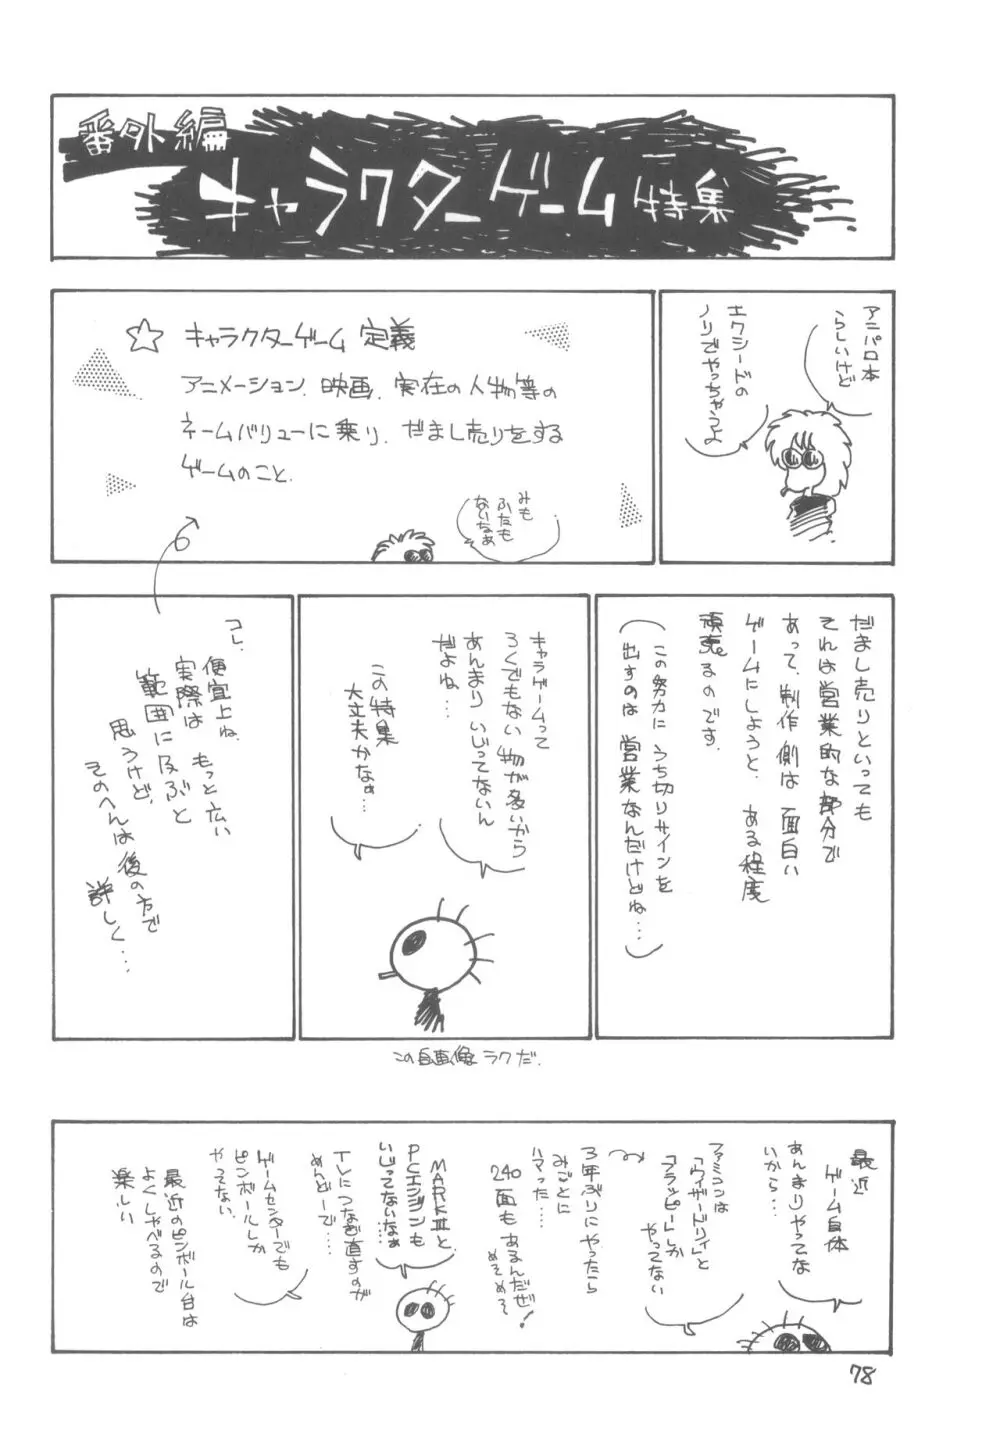 番外編
キャラクターゲーム特集
アニパロ本
らしいけど
エクシードの
ノリでやっちゃうよ
☆ キャラクターゲーム定義
アニメーション、映画、実在の人物等の
ネームバリューに乗り、だまし売りをする
ゲームのこと。
みも
ふたも
ないなぁ
だまし売りといっても
それは営業的な部分で
あって、制作側は面白い
ゲームにしようと、ある程度
頑張るのです。
(この努力にうち切りサインを
出すのは営業なんだけどね…)
キャラゲームって
ろくでもない物が多いから
あんまりいじってないん
だよね…
この特集
大丈夫かなぁ…
コレ、
便宜上ね。
実際は もっと広い
範囲に及ぶと
思うけど、
そのへんは後の方で
詳しく…
この自画像ラクだ。
最近
ゲーム自体
あんまりやってな
いから…
ファミコンは
「ウィザードリィ」と
「フラッピー」しか
やってない
3年ぶりにやったら
みごとに
ハマった……
240面もあるんだぜ!
めそめそ
MARKⅢと、
PCエンジンも
いじってないなぁ
TVにつなぎ直すのが
めんどーで……
ゲームセンターでも
ピンボールしか
やってない。
最近のピンボール台は
よくしゃべるので
楽しい
78